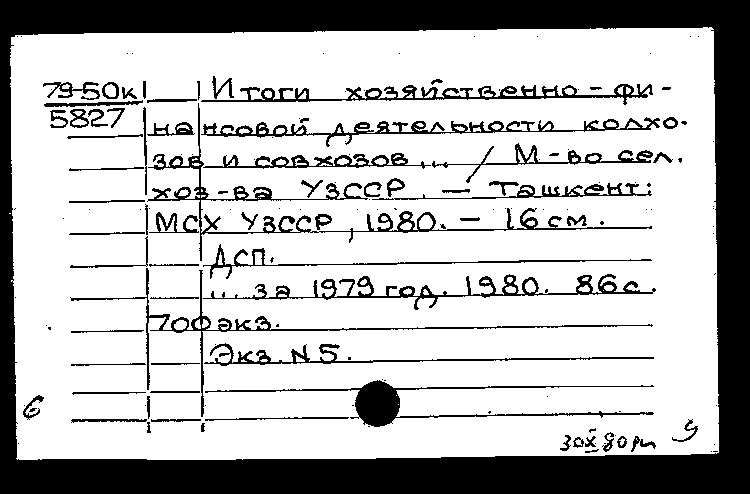 79-50к Итоги хозяйственно-фи-
5827
нансовой деятельности колхо-
зов и совхозов... / М-во сел.
хоз-ва УзССР. — Ташкент:
МСХ УзССР, 1980. — 16 см.
ДСП.
... за 1979 год. 1980. 86 с.
700 экз.
Экз. N 5.
6
30 X 80